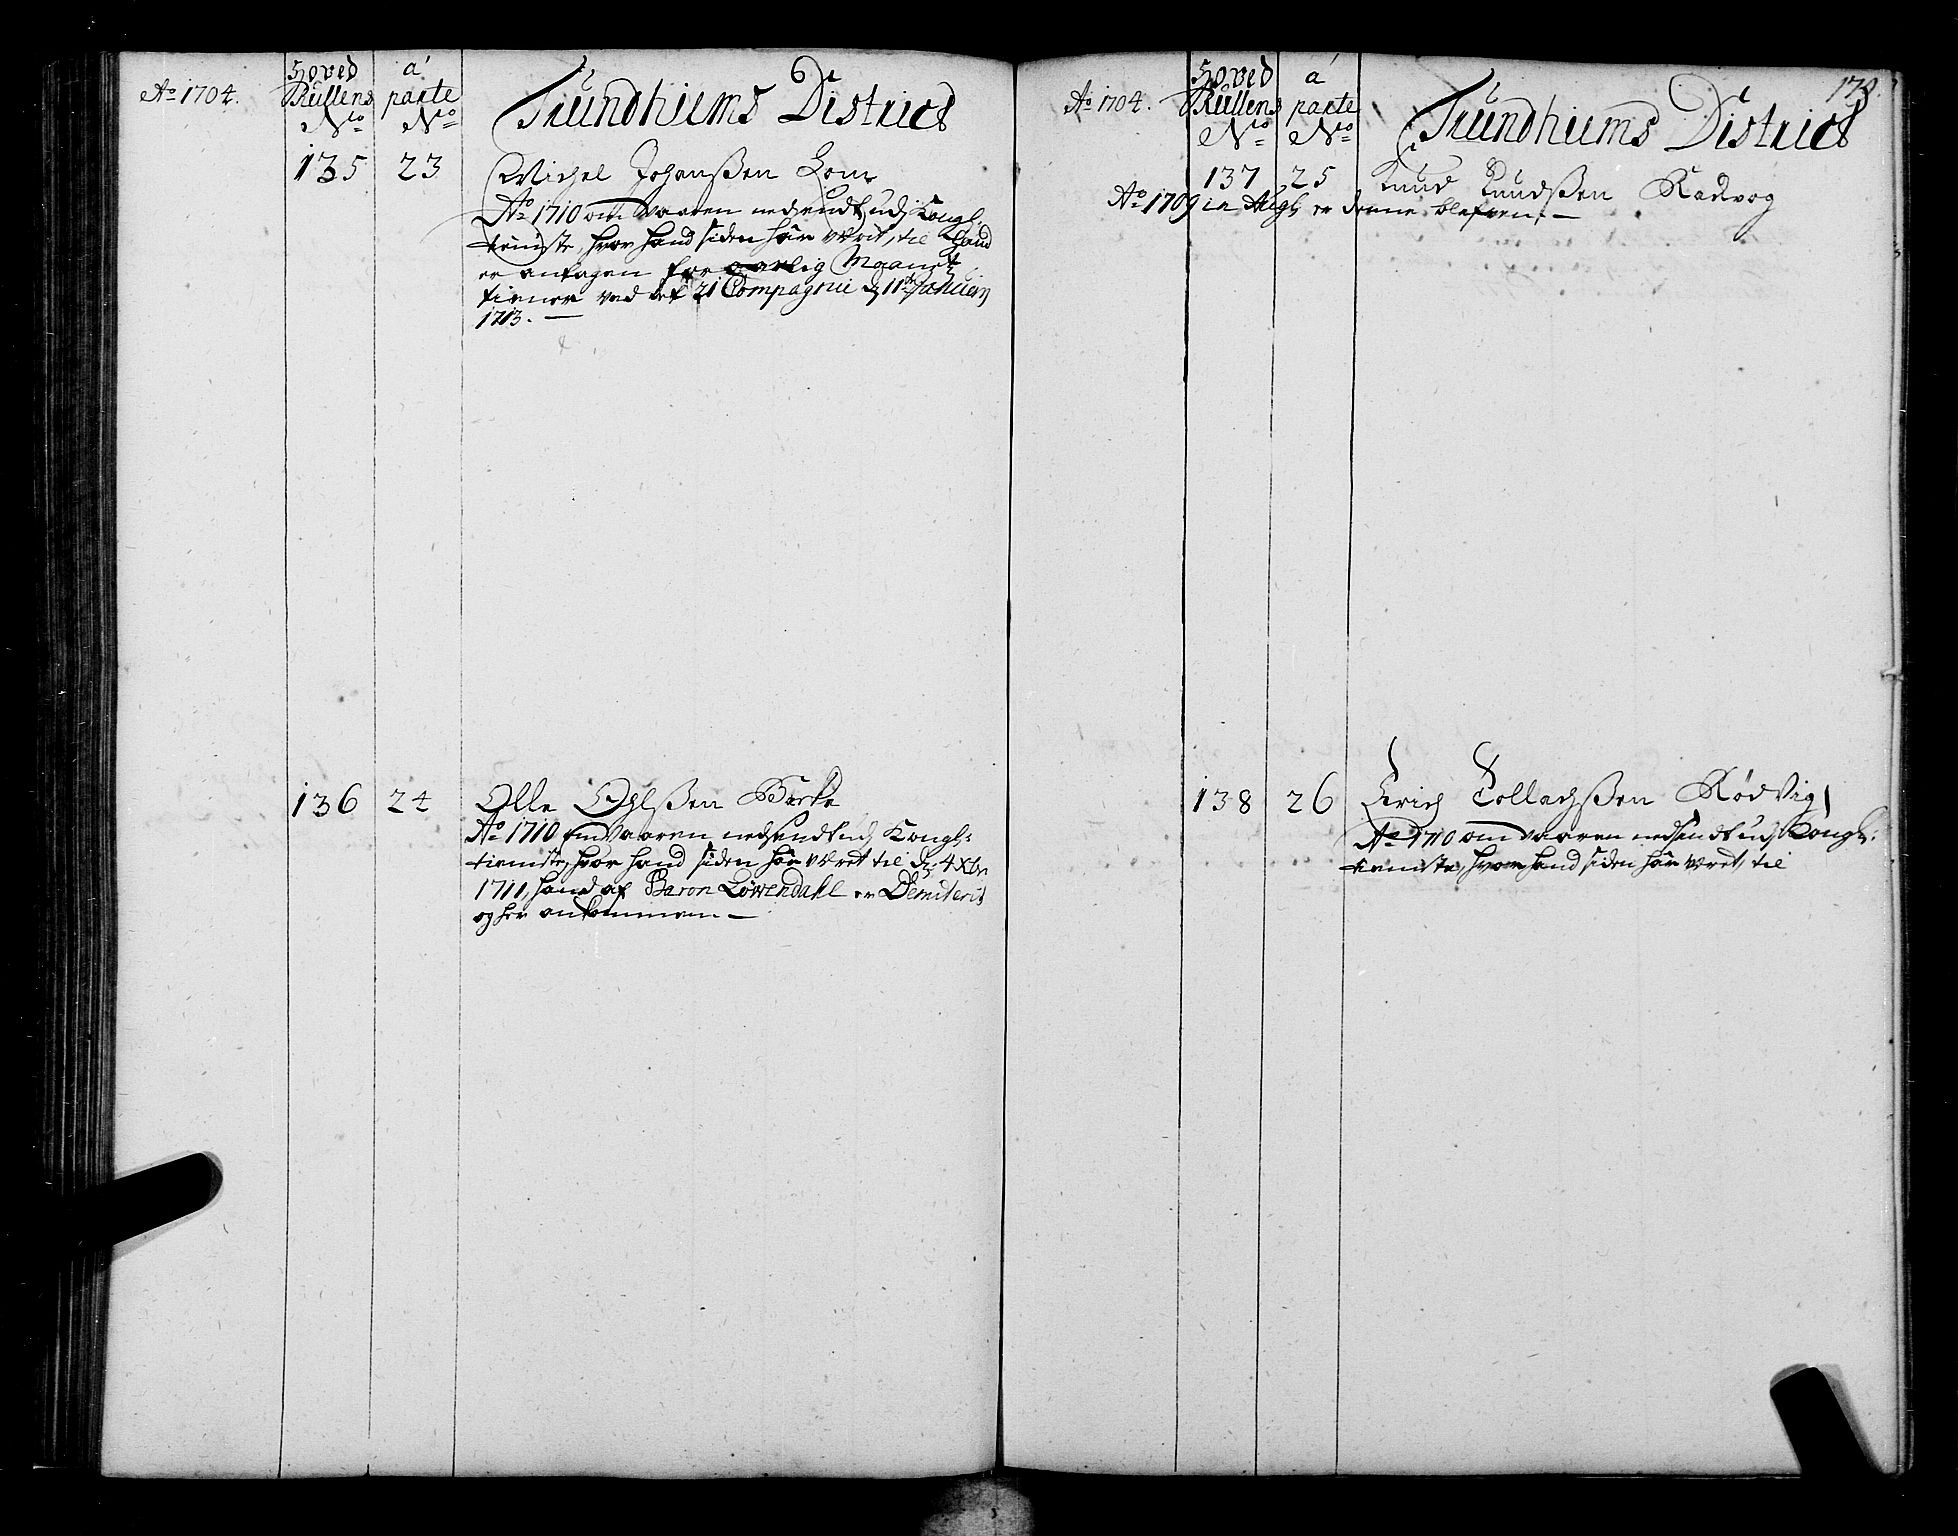 Ao 1704.
Hoved Rullens No
a parte No
Trundhiems District
135 23 Michel Johanßen Lom
Ao 1710 om Vaaren nedsendt udj Kongl.
tieniste, hvor hand siden har været, til hand
er antagen for Maanetz
tiener ved det 21 Compagnie d 11te January
1713. —
136 24 Olle Ohlßen
Ao 1710 om vaaren nedsendt udj Kongl:
tieniste, hvor hand siden har været til d. 4 Xbr
1711, hand af Baron Löwendahl er Demiterit
og her ankommen. —
178.
Ao 1704.
Hoved Rullens No
a parte No
Trundhiems District
137 25 Knud Knudßen Radvog
Ao 1709 in Aug er denne blefven. —
138 26 Erich Tollachßen Rødvig
Ao 1710 om vaaren nedsendt udj Kongl:
tieniste, hvor hand siden har været, til